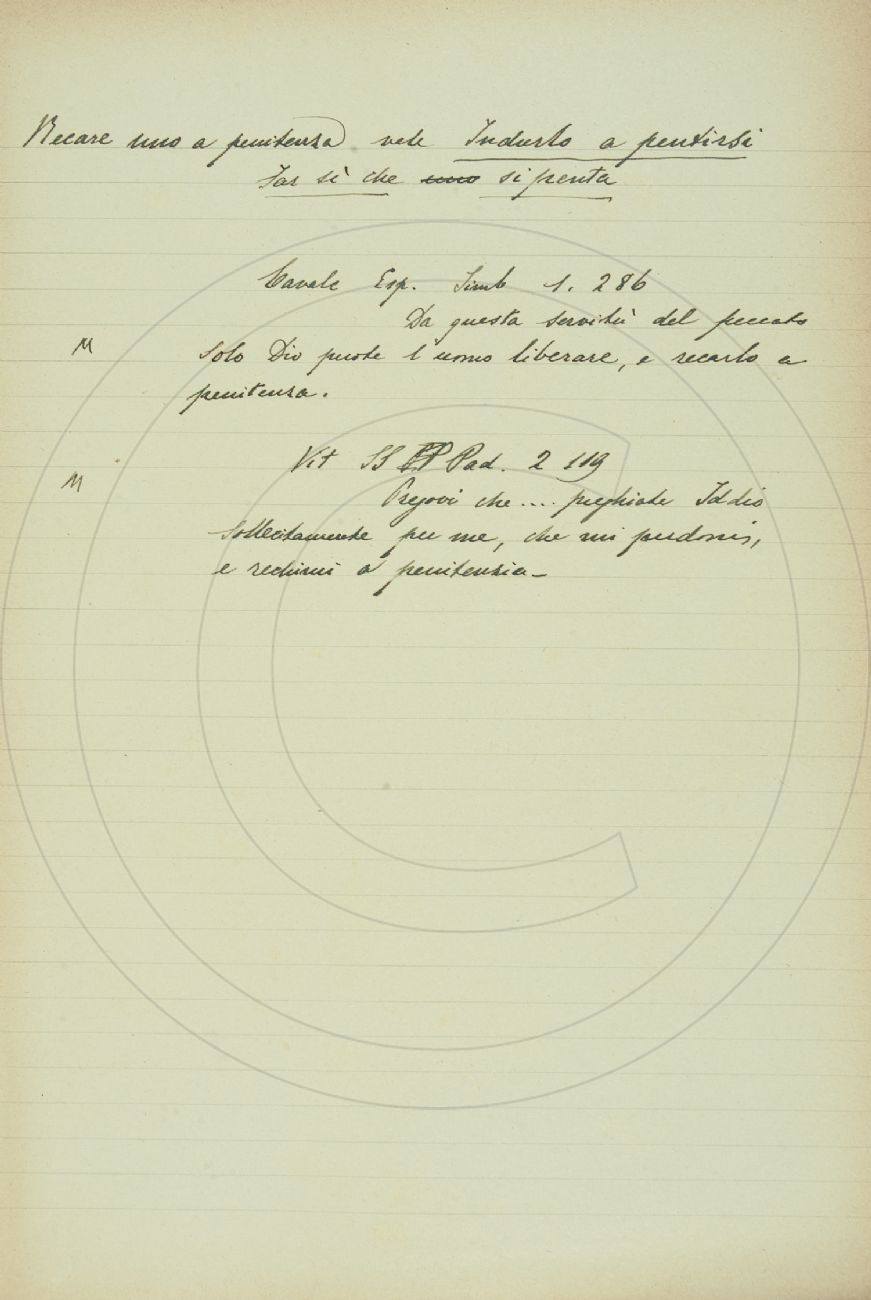 Recare uno a penitenza) vale Indurlo a pentirsi
Far sì che uno si penta
Cavalc Esp. Simb 1. 286
Da questa servitù del peccato
M solo Dio puote l'uomo liberare, e recarlo a
penitenza.
Vit SS Pad. 2 119
M Pregovi che .... preghiate Iddio
sollecitamente per me, che mi perdoni,
e rechimi a penitenzia_